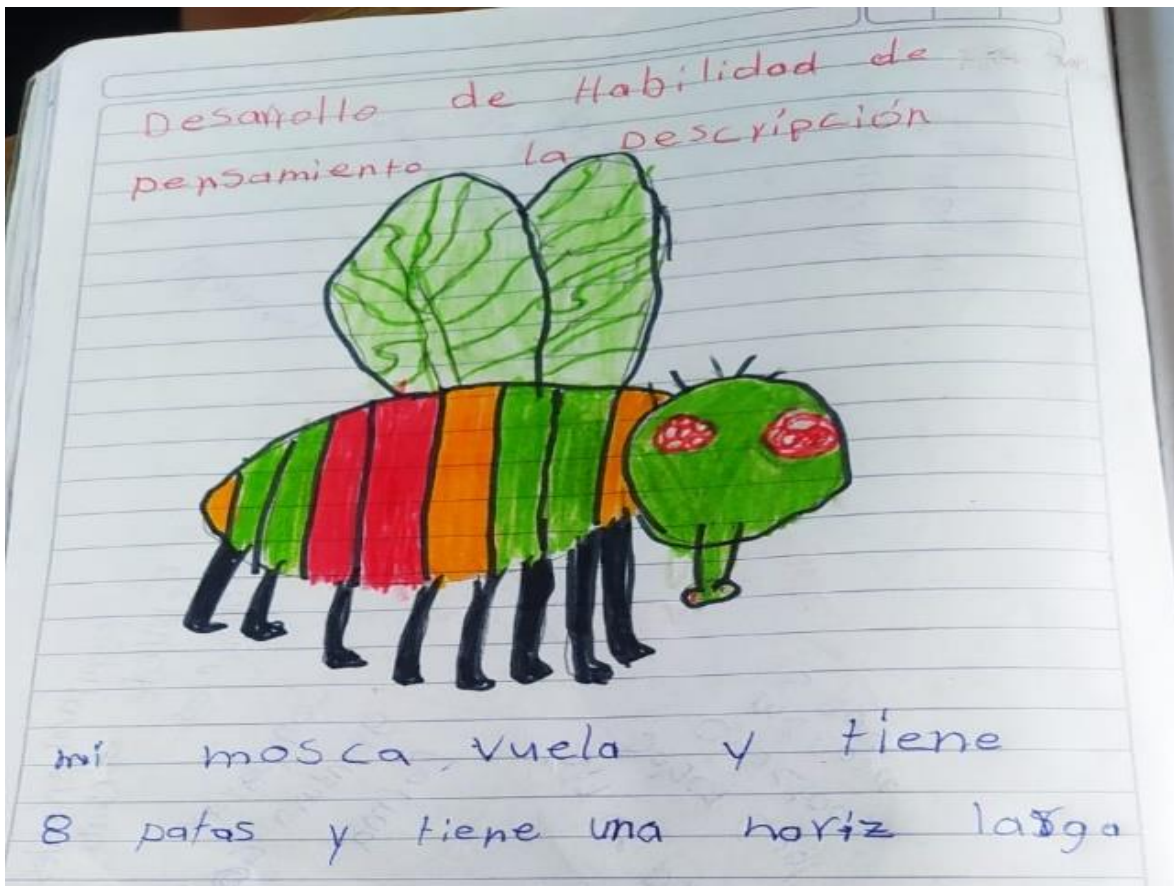 Desarrollo de Habilidad de
pensamiento la Descripción
mi mosca vuela y tiene
8 patas y tiene una noriz larga